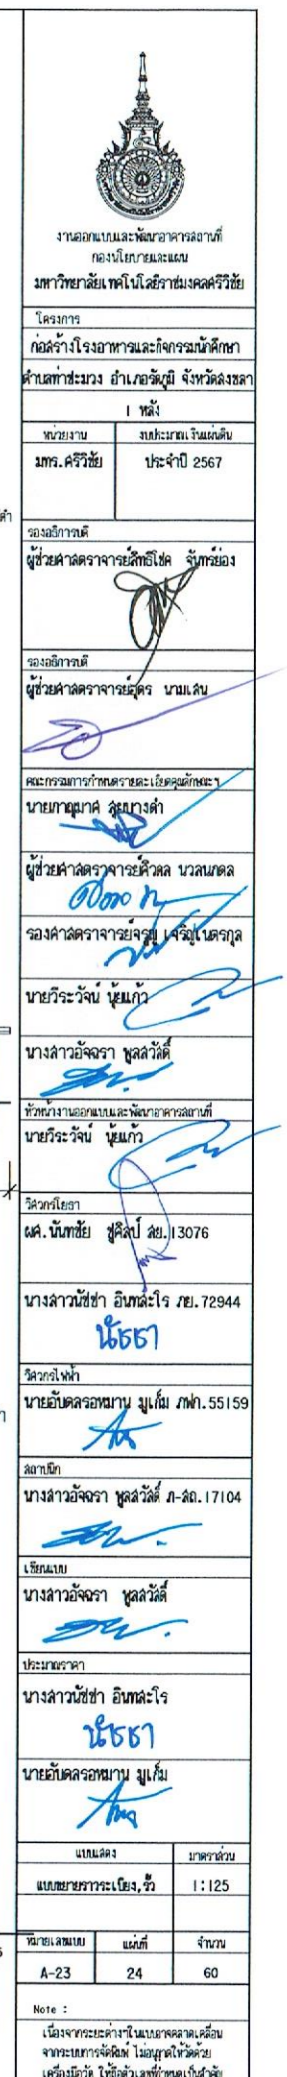 งานออกแบบและพัฒนาอาคารสถานที่
กองนโยบายและแผน
มหาวิทยาลัยเทคโนโลยีราชมงคลศรีวิชัย
โครงการ
ก่อสร้างโรงอาหารและกิจกรรมนักศึกษา
ตำบลท่าชะมวง อำเภอรัตภูมิ จังหวัดสงขลา
1 หลัง
หน่วยงาน งบประมาณเงินแผ่นดิน
มทร.ศรีวิชัย ประจำปี 2567
รองอธิการบดี
ผู้ช่วยศาสตราจารย์สิทธิโชค จันทร์ย่อง
รองอธิการบดี
ผู้ช่วยศาสตราจารย์อุดร นามเสน
คณะกรรมการกำหนดรายละเอียดคุณลักษณะฯ
นายภาณุมาศ สุยบางดำ
ผู้ช่วยศาสตราจารย์ศิวดล นวลนภดล
รองศาสตราจารย์จรูญ เจริญเนตรกุล
นายวีระวัจน์ นุ้ยแก้ว
นางสาวอัจฉรา พูลสวัสดิ์
หัวหน้างานออกแบบและพัฒนาอาคารสถานที่
นายวีระวัจน์ นุ้ยแก้ว
วิศวกรโยธา
ผศ.นันทชัย ชูศิลป์ สย.13076
นางสาวนัชชา อินทสะโร ภย.72944
นัชชา
วิศวกรไฟฟ้า
นายอับดลรอหมาน มูเก็ม ภฟก.55159
สถาปนิก
นางสาวอัจฉรา พูลสวัสดิ์ ภ-สถ.17104
เขียนแบบ
นางสาวอัจฉรา พูลสวัสดิ์
ประมาณราคา
นางสาวนัชชา อินทสะโร
นัชชา
นายอับดลรอหมาน มูเก็ม
แบบแสดง มาตราส่วน
แบบขยายราวระเบียง,รั้ว 1:125
หมายเลขแบบ แผ่นที่ จำนวน
A-23 24 60
Note :
เนื่องจากระยะต่างๆในแบบอาจคลาดเคลื่อน
จากระบบการจัดพิมพ์ ไม่อนุญาตให้วัดด้วย
เครื่องมือวัด ให้ถือตัวเลขที่กำหนดเป็นสำคัญ